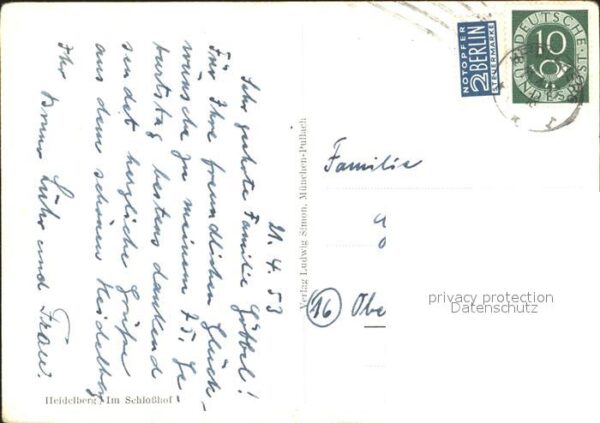 21.4.53
Sehr geehrte Familie Göbbel!
Für Ihre freundlichen Glück-
wünsche zu meinem 75. Ge-
burtstag bestens dankend
sendet herzliche Grüße
aus dem schönen Heidelberg
Ihr Bruno Lühr und Frau.
Heidelberg, Im Schloßhof
Verlag Ludwig Simon, München-Pullach
NOTOPFER
2 BERLIN
STEUERMARKE
DEUTSCHE
10
BUNDESPOST
Familie
(16) Obe
privacy protection
Datenschutz